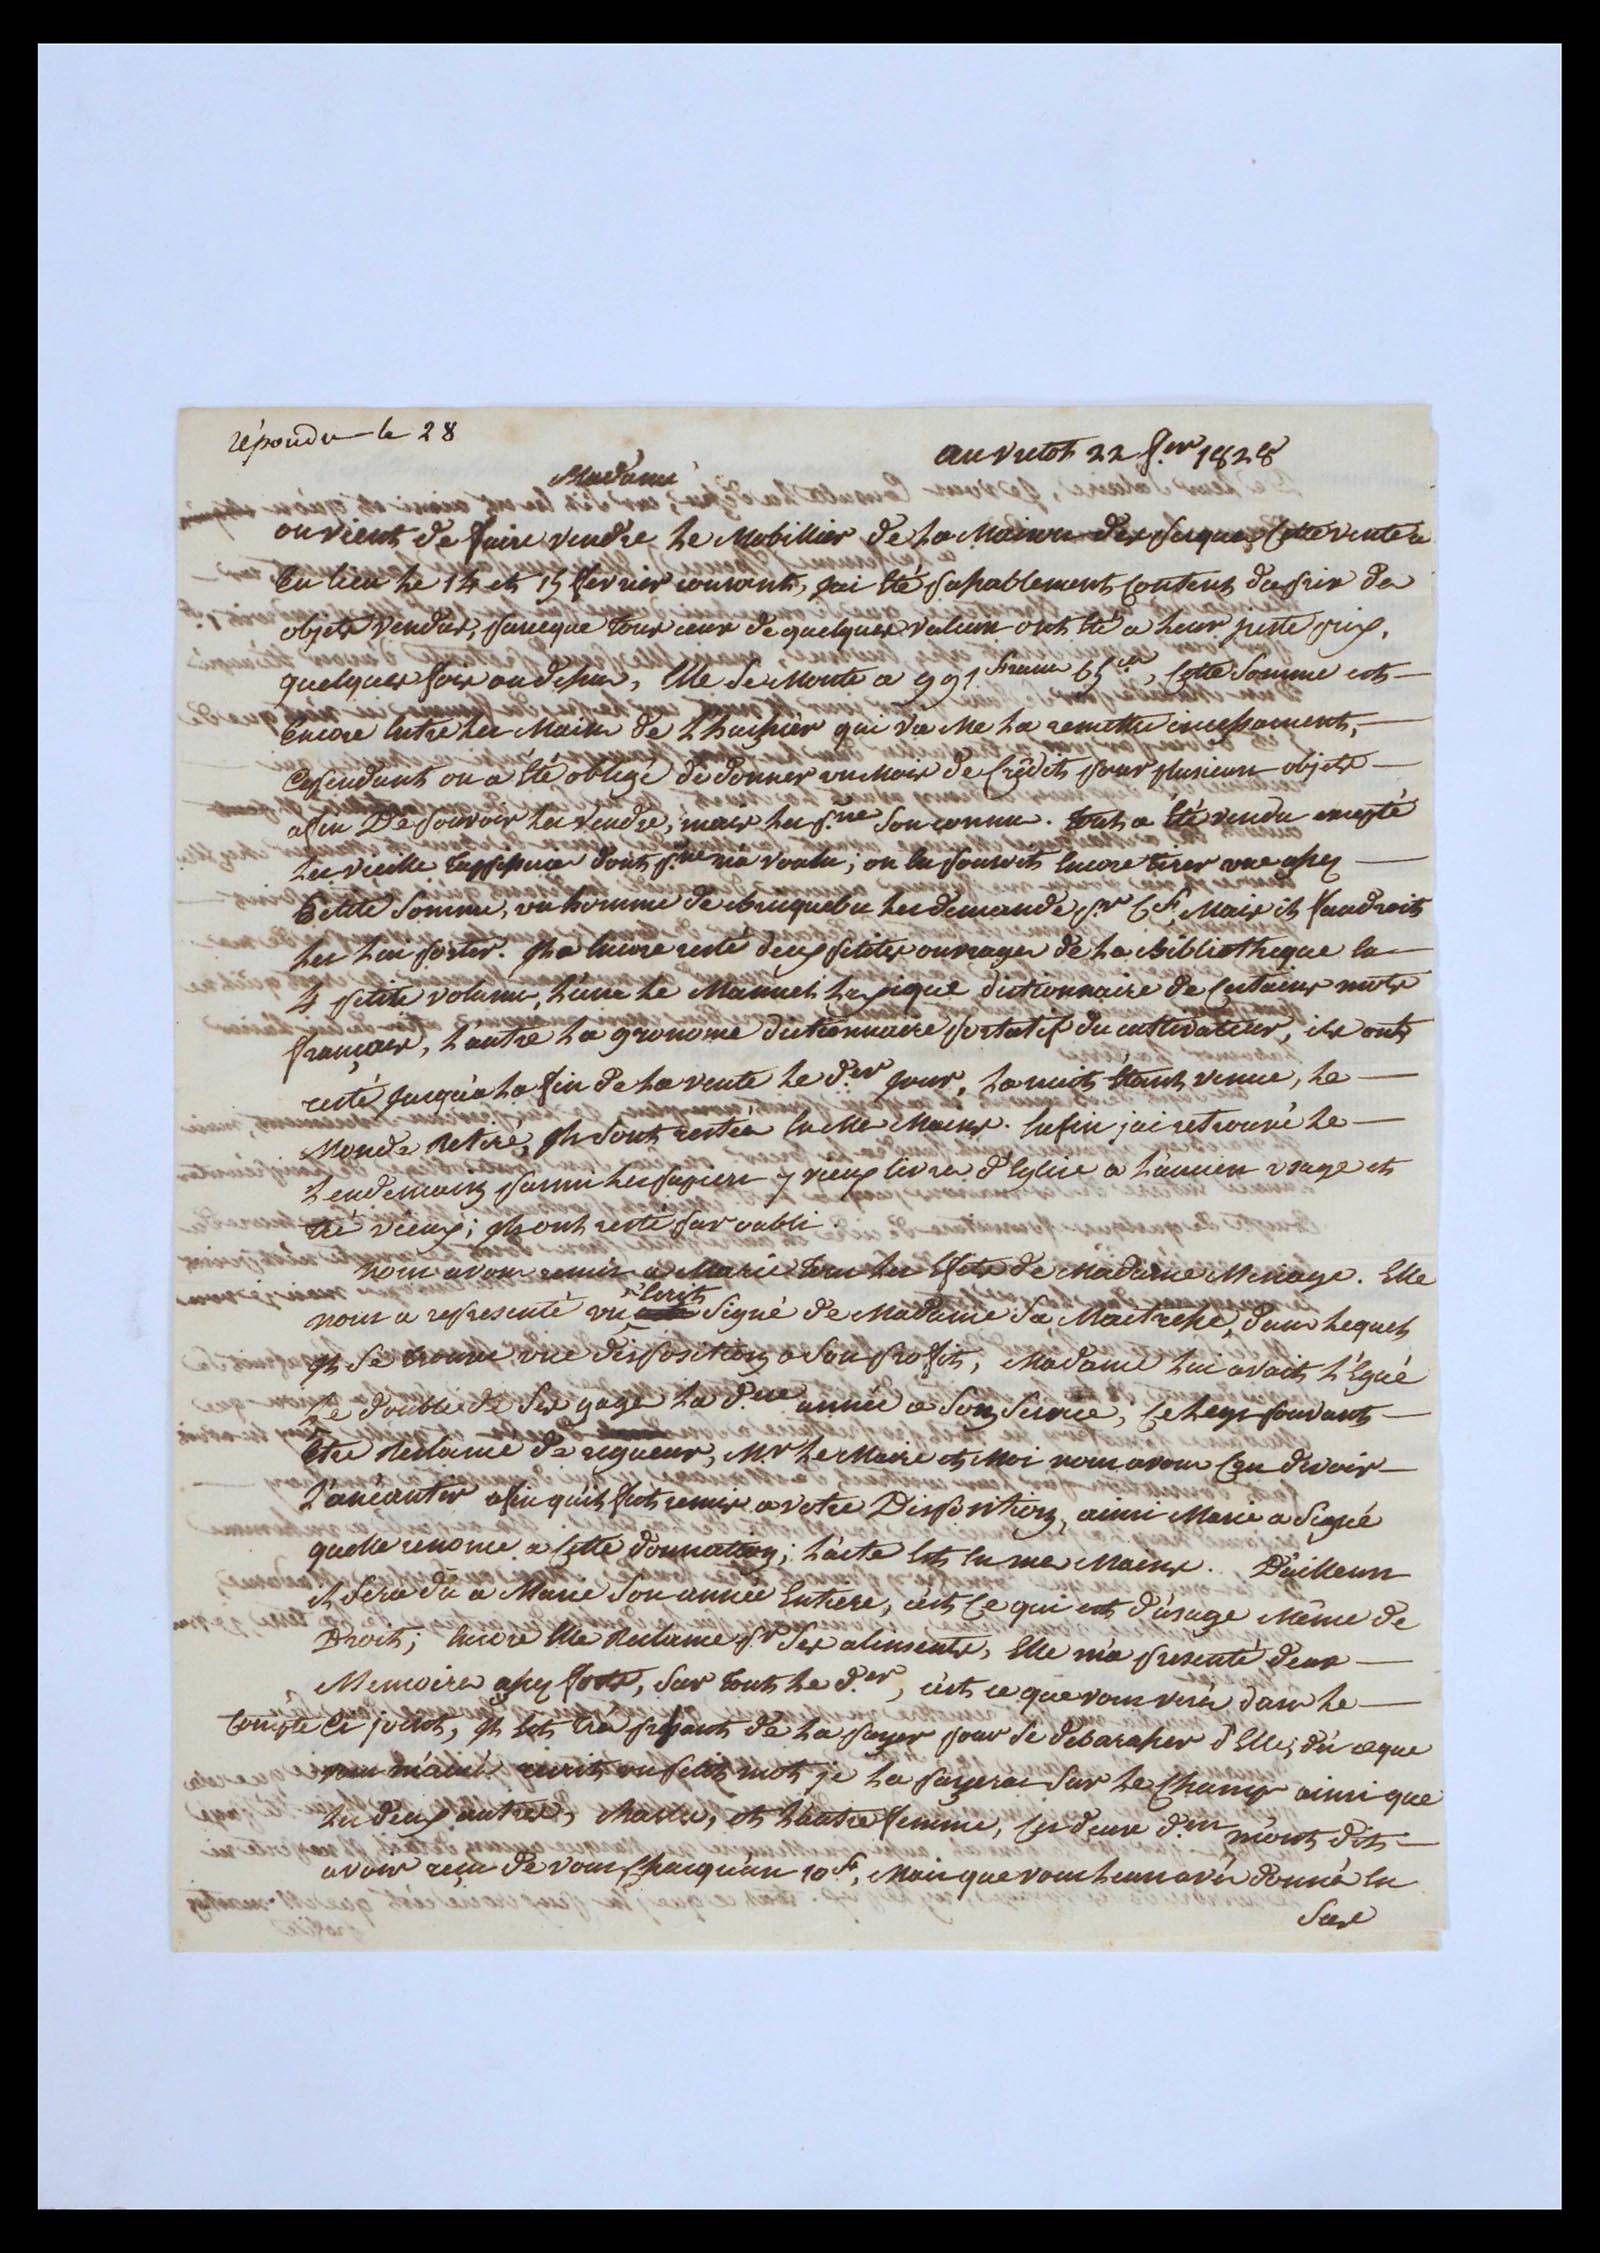 répondu le 28
au vretot 22 f.er 1828
Madame
on vient de faire vendre le Mobillier de la Maison des perques, Cette vente a
Eu lieu le 14 et 15 fevrier courant, j'ai Eté passablement Content du prix des
objets vendus, parceque tous ceux de quelques valeurs ont Eté a leur juste prix,
quelques fois au dessus, Elle se Monte a 991 francs 65 c.es, Cette Somme est
Encore Entre les Mains de L'huissier qui va Me la remettre incessament,
Cependant on a Eté obligé de donner un Mois de Crédit pour plusieurs objets
afin De pouvoir les vendre, mais les p.nes Son connu. Tout a Eté vendu excepté
Les vieille tappisseries dont p.ne n'a voulu; on En pourroit Encore tirer une assez
Petite Somme, un homme de Bricquebec les demande p.r 6 f. Mais il faudroit
Les lui porter. Il a Encore resté deux petits ouvrages de la Bibliotheque En
4 petits volumes, L'une le Manuel Lexique dictionnaire de Certains mots
français, L'autre L'agronome dictionnaire portatif du cultivateur, ils ont
resté jusqu'a la fin de la vente le d.er jour, la nuit étant venue, le
Monde Retiré, Ils sont restés En Mes Mains. Enfin j'ai retrouvé le
Lendemain parmi les papiers 7 vieux livres d'Eglise a l'ancien usage et
tré vieux; Ils ont resté par oubli.
nous avons remis a Marie tous les Efets de Madame Mesnage. Elle
nous a representé un Ecrit Signé de Madame Sa Maitresse, dans lequel
Il Se trouve une disposition a Son profit, Madame lui avait L'Egué
Le double de Ses gages la d.ere année a Son Service, Ce legs pouvant
Etre Reclamé de rigueur, M.r le Maire et Moi nous avons Cru devoir
L'anéantir afin qu'il fut remis a votre Disposition, ainsi Marie a Signé
quelle renonce a Cette donnation; L'acte Est En mes Mains. D'ailleurs
il Sera dû a Marie Son année Entiere, c'est Ce qui est d'usage Même de
Droit; Encore Elle Reclame p.r Ses aliments, Elle m'a presenté deux
Memoires assez forts, Sur tout le d.er, c'est ce que vous verés dans le
Compte Ci joint, Il Est tré pressant de la payer pour Se debarasser d'Elle; dès ceque
vous m'aurés ecrit un petit mot je la payerai Sur le Champ ainsi que
les deux autres, Charles, et l'autre femme, Ces deux d.ers m'ont dit
avoir reçu de vous Chacqu'un 10 f., Mais que vous leurs avés donnés En
Sus